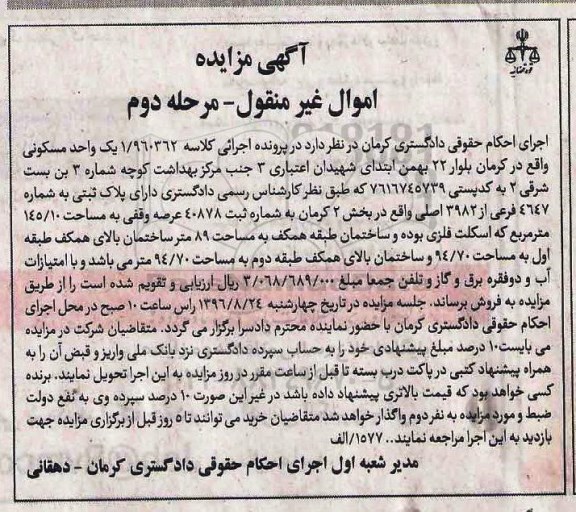 آگهی مزایده
اموال غیر منقول- مرحله دوم
اجرای احکام حقوقی دادگستری کرمان در نظر دارد در پرونده اجرائی کلاسه ۱/۹۶۰۳۶۲ یک واحد مسکونی
واقع در کرمان بلوار ۲۲ بهمن ابتدای شهیدان اعتباری ۳ جنب مرکز بهداشت کوچه شماره ۳ بن بست
شرقی ۲ به کدپستی ۷۶۱۶۷۴۵۷۳۹ که طبق نظر کارشناس رسمی دادگستری دارای پلاک ثبتی به شماره
۴۶۴۷ فرعی از ۳۹۸۲ اصلی واقع در بخش ۲ کرمان به شماره ثبت ۴۰۸۷۸ عرصه وقفی به مساحت ۱۴۵/۱۰
مترمربع که اسکلت فلزی بوده و ساختمان طبقه همکف به مساحت ۸۹ متر ساختمان بالای همکف طبقه
اول به مساحت ۹۴/۷۰ و ساختمان بالای همکف طبقه دوم به مساحت ۹۴/۷۰ متر می باشد و با امتیازات
آب و دوفقره برق و گاز و تلفن جمعا مبلغ ۳/۰۶۸/۶۸۹/۰۰۰ ریال ارزیابی و تقویم شده است را از طریق
مزایده به فروش برساند. جلسه مزایده در تاریخ چهارشنبه ۱۳۹۶/۸/۲۴ راس ساعت ۱۰ صبح در محل اجرای
احکام حقوقی دادگستری کرمان با حضور نماینده محترم دادسرا برگزار می گردد. متقاضیان شرکت در مزایده
می بایست ۱۰ درصد مبلغ پیشنهادی خود را به حساب سپرده دادگستری نزد بانک ملی واریز و قبض آن را به
همراه پیشنهاد کتبی در پاکت درب بسته تا قبل از ساعت مقرر در روز مزایده به این اجرا تحویل نمایند. برنده
کسی خواهد بود که قیمت بالاتری پیشنهاد داده باشد در غیر این صورت ۱۰ درصد سپرده وی به نفع دولت
ضبط و مورد مزایده به نفر دوم واگذار خواهد شد متقاضیان خرید می توانند تا ۵ روز قبل از برگزاری مزایده جهت
بازدید به این اجرا مراجعه نمایند.. ۱۵۷۷/الف
مدیر شعبه اول اجرای احکام حقوقی دادگستری کرمان - دهقانی